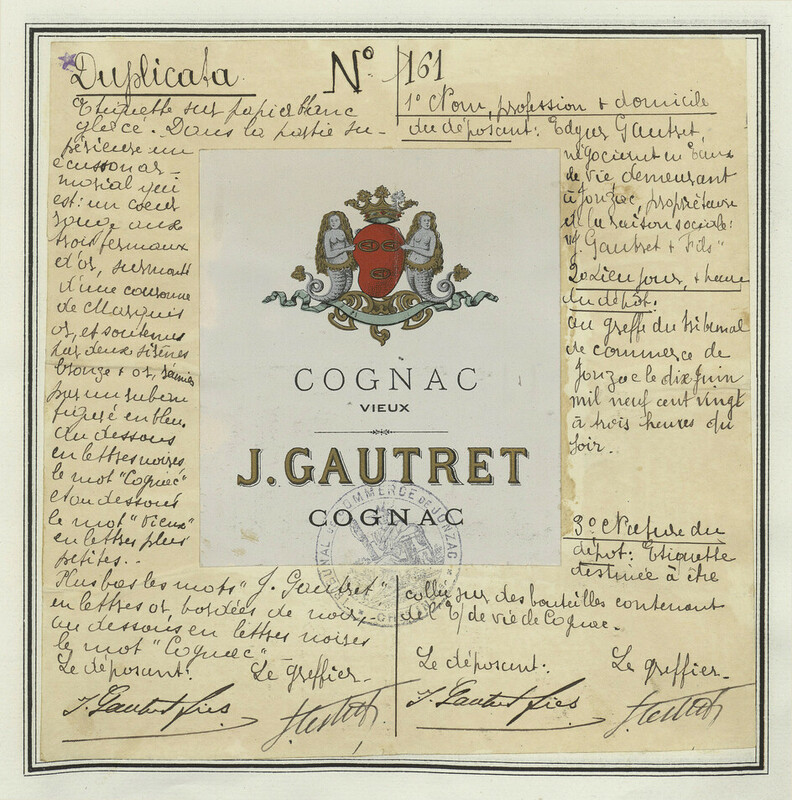 Duplicata
Nº 161
Etiquette sur papier blanc
glacé. Dans la partie su-
périeure un
écusson ar-
morial qui
est: un coeur
rouge aux
trois fermaux
d'or, surmonté
d'une couronne
de Marquis
or, et soutenus
par deux sirènes
bronze & or,
par un ruban
figuré en bleu
Au dessous
en lettres noires
le mot "Cognac"
et au dessous
le mot "Vieux"
en lettres plus
petites..
Plus bas les mots "J. Gautret"
en lettres or, bordées de noir,
au dessous en lettres noires
le mot "Cognac"
Le déposant: Le greffier.
J. Gautret fies
COGNAC
VIEUX
J. GAUTRET
COGNAC
TRIBUNAL DE COMMERCE DE JONZAC
1º Nom, profession & domicile
du déposant: Edgar Gautret,
négociant en Eaux
de vie demeurant
à Jonzac, propriétaire
de la raison sociale:
"J. Gautret & Fils"
2º Lieu jour, & heure
du dépôt:
au greffe du tribunal
de commerce de
Jonzac le dix Juin
mil neuf cent vingt
à trois heures du
soir.
3º Nature du
dépot: Etiquette
destinée à être
collée sur des bouteilles contenant
de l'E/ de vie de Cognac.
Le déposant: Le greffier.
J. Gautret fies